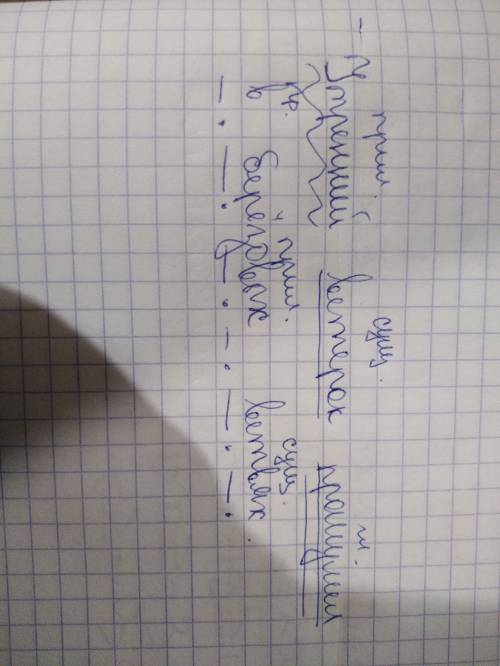 прил. сущ. гл.
Утренний ветерок прошумел
пр. прил. сущ.
в берёзовых ветвях.